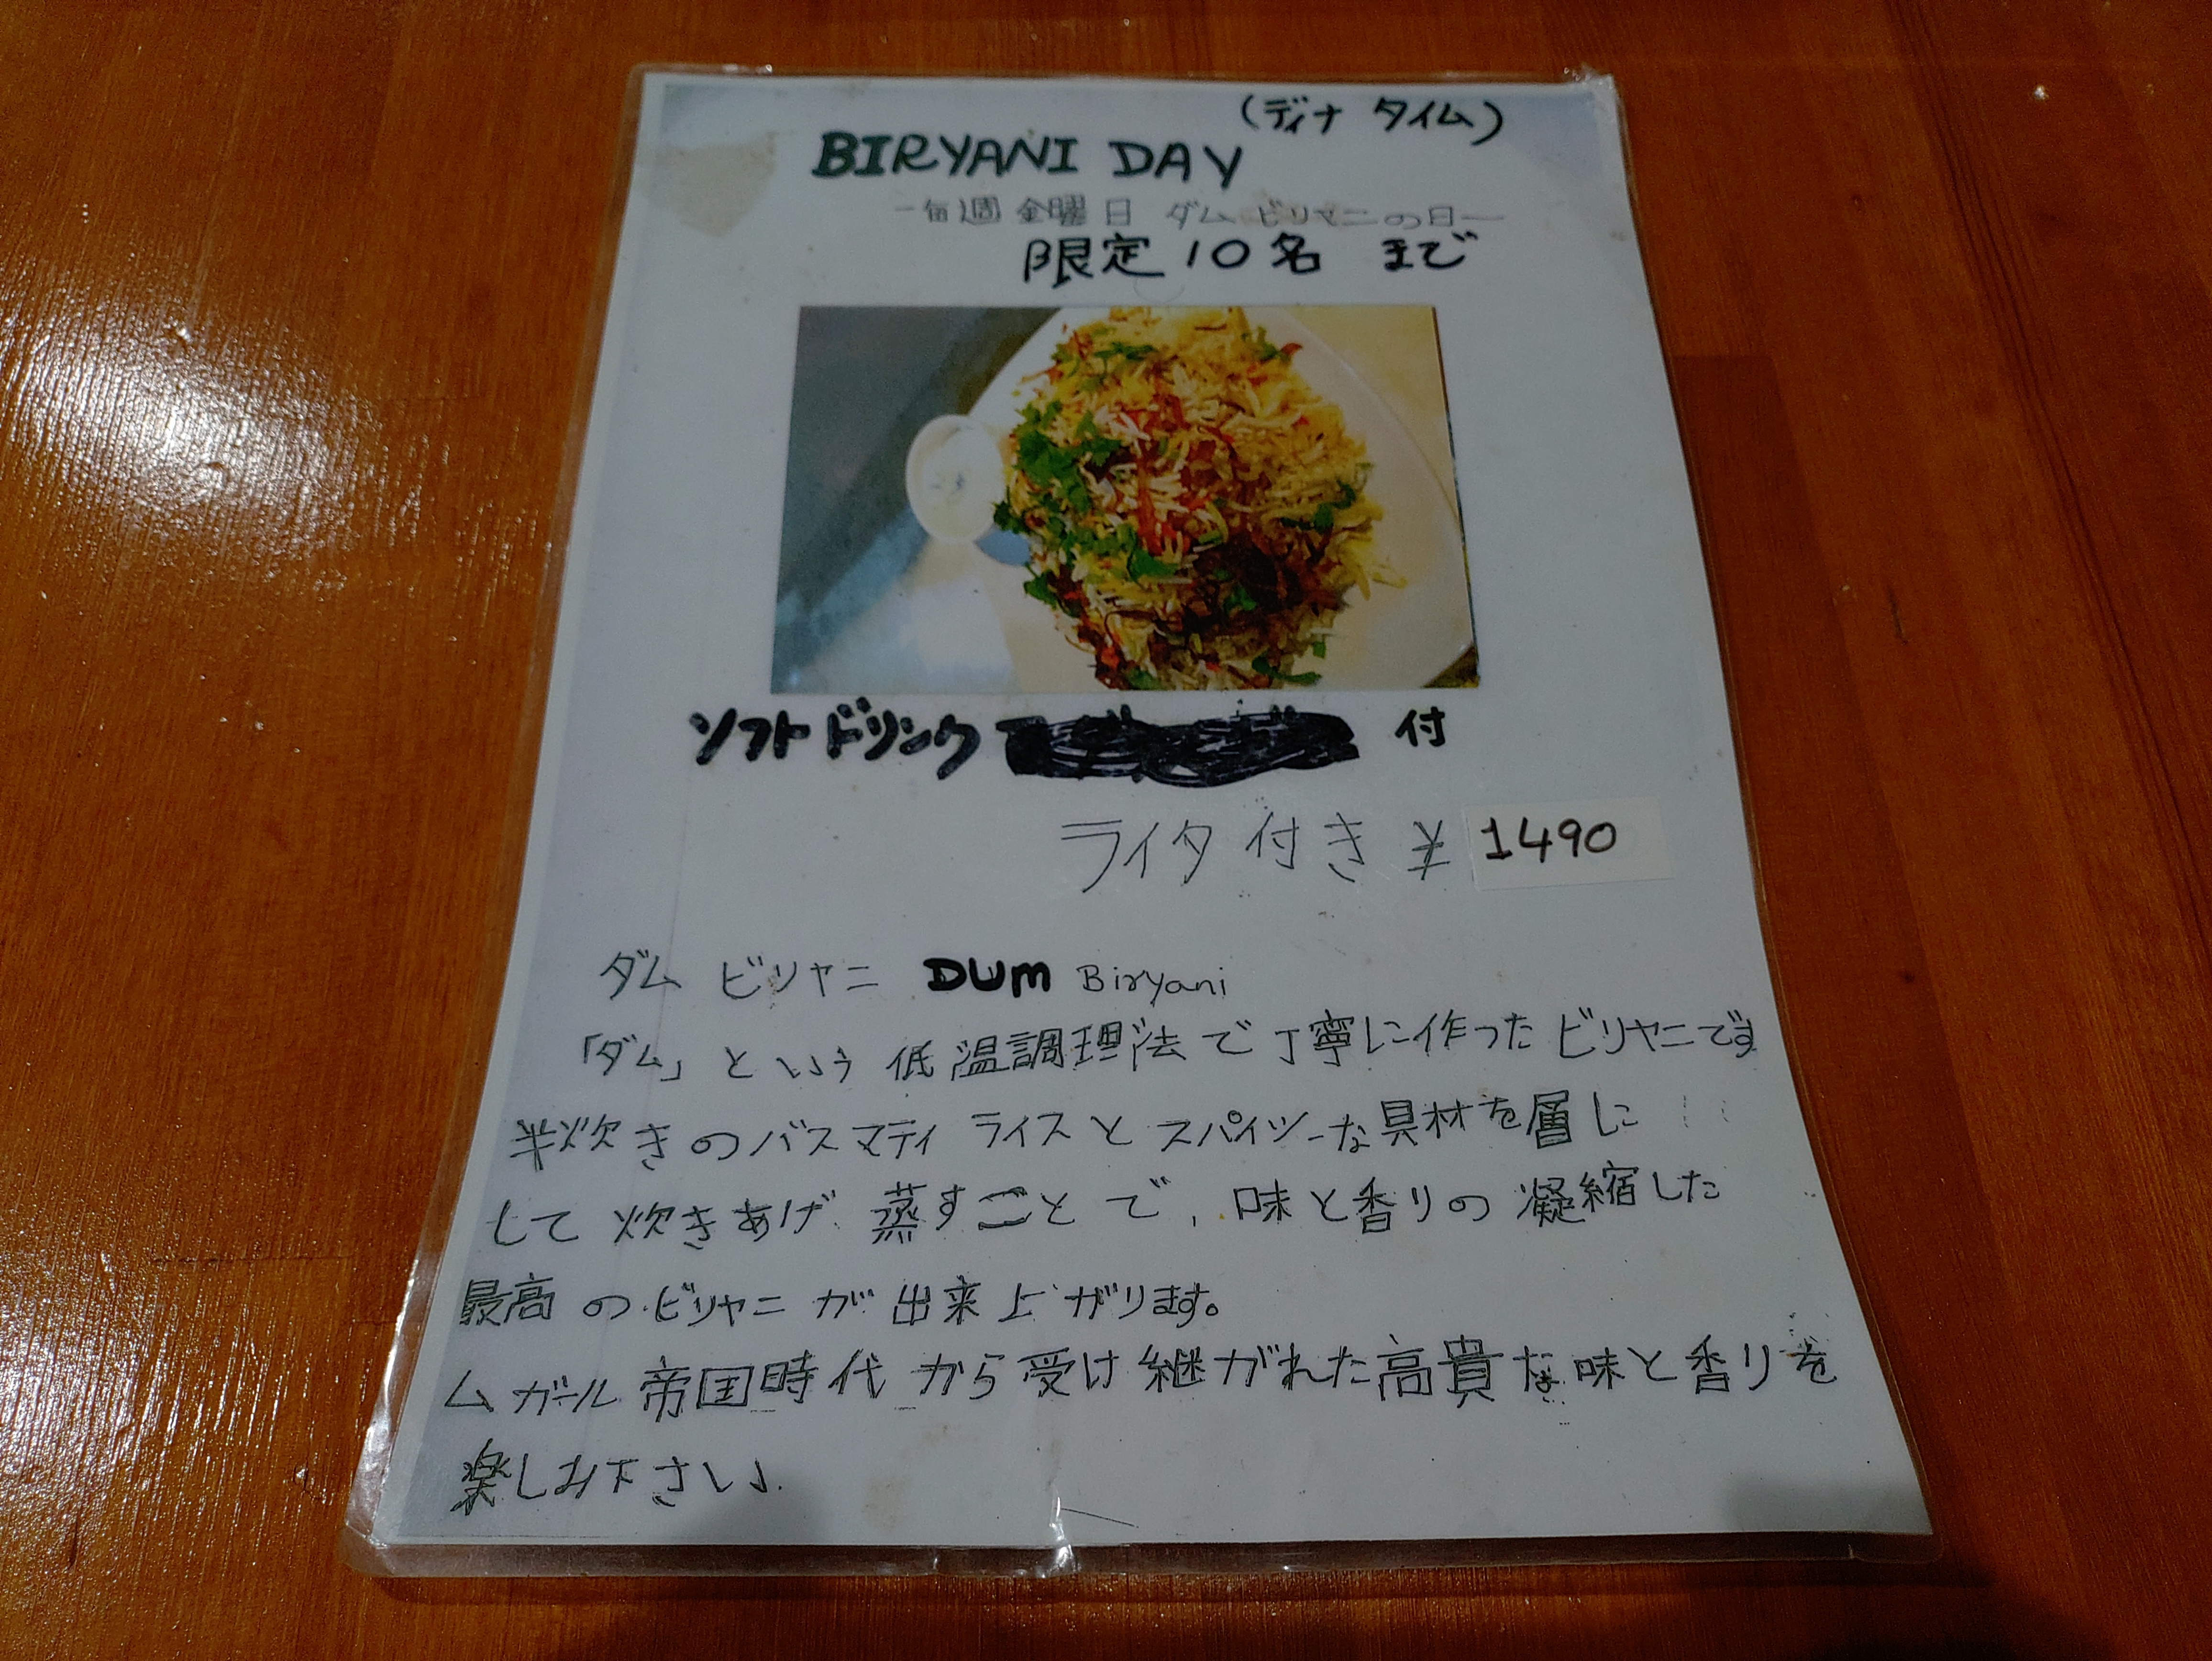 (ディナ タイム)
BIRYANI DAY
-毎週 金曜日 ダム ビリヤニの日-
限定 10名 まで
ソフト ドリンク 付
ライタ 付き ¥ 1490
ダム ビリヤニ DUM Biryani
「ダム」という 低温調理法で丁寧に作ったビリヤニです
半炊きのバスマティ ライスと スパイシーな具材を層に
して 炊きあげ 蒸すことで、味と香りの凝縮した
最高のビリヤニが出来上がります。
ムガール帝国時代から受け継がれた高貴な味と香りを
楽しみ下さい。